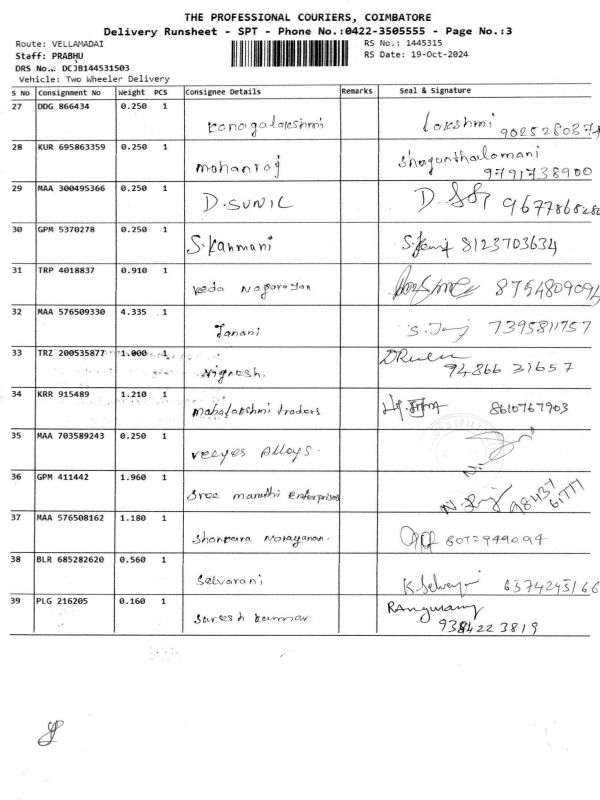 THE PROFESSIONAL COURIERS, COIMBATORE
Delivery Runsheet - SPT - Phone No.:0422-3505555 - Page No.:3
Route: VELLAMADAI RS No.: 1445315
Staff: PRABHU RS Date: 19-Oct-2024
DRS No.: DCJB144531503
Vehicle: Two Wheeler Delivery
S No Consignment No Weight PCS Consignee Details Remarks Seal & Signature
27 DDG 866434 0.250 1 Kanagalakshmi Lakshmi 9025280374
28 KUR 695863359 0.250 1 mohanraj Shagunthalamani
9791738900
29 MAA 300495366 0.250 1 D.SUNIL 9677868280
30 GPM 5370278 0.250 1 S.Kanmani 8123703634
31 TRP 4018837 0.910 1 Veda Nagarajan 8754809094
32 MAA 576509330 4.335 1 Janani 7395811757
33 TRZ 200535877 1.000 1 Vignesh. 94866 31657
34 KRR 915489 1.210 1 Mahalakshmi traders 8610767903
35 MAA 703589243 0.250 1 Veeyes Alloys.
36 GPM 411442 1.960 1 Sree maruthi Enterprises 98437
61777
37 MAA 576508162 1.180 1 Shankara Narayanan. 8072949094
38 BLR 685282620 0.560 1 Selvarani 6374243166
39 PLG 216205 0.160 1 Suresh kumar
9384223819